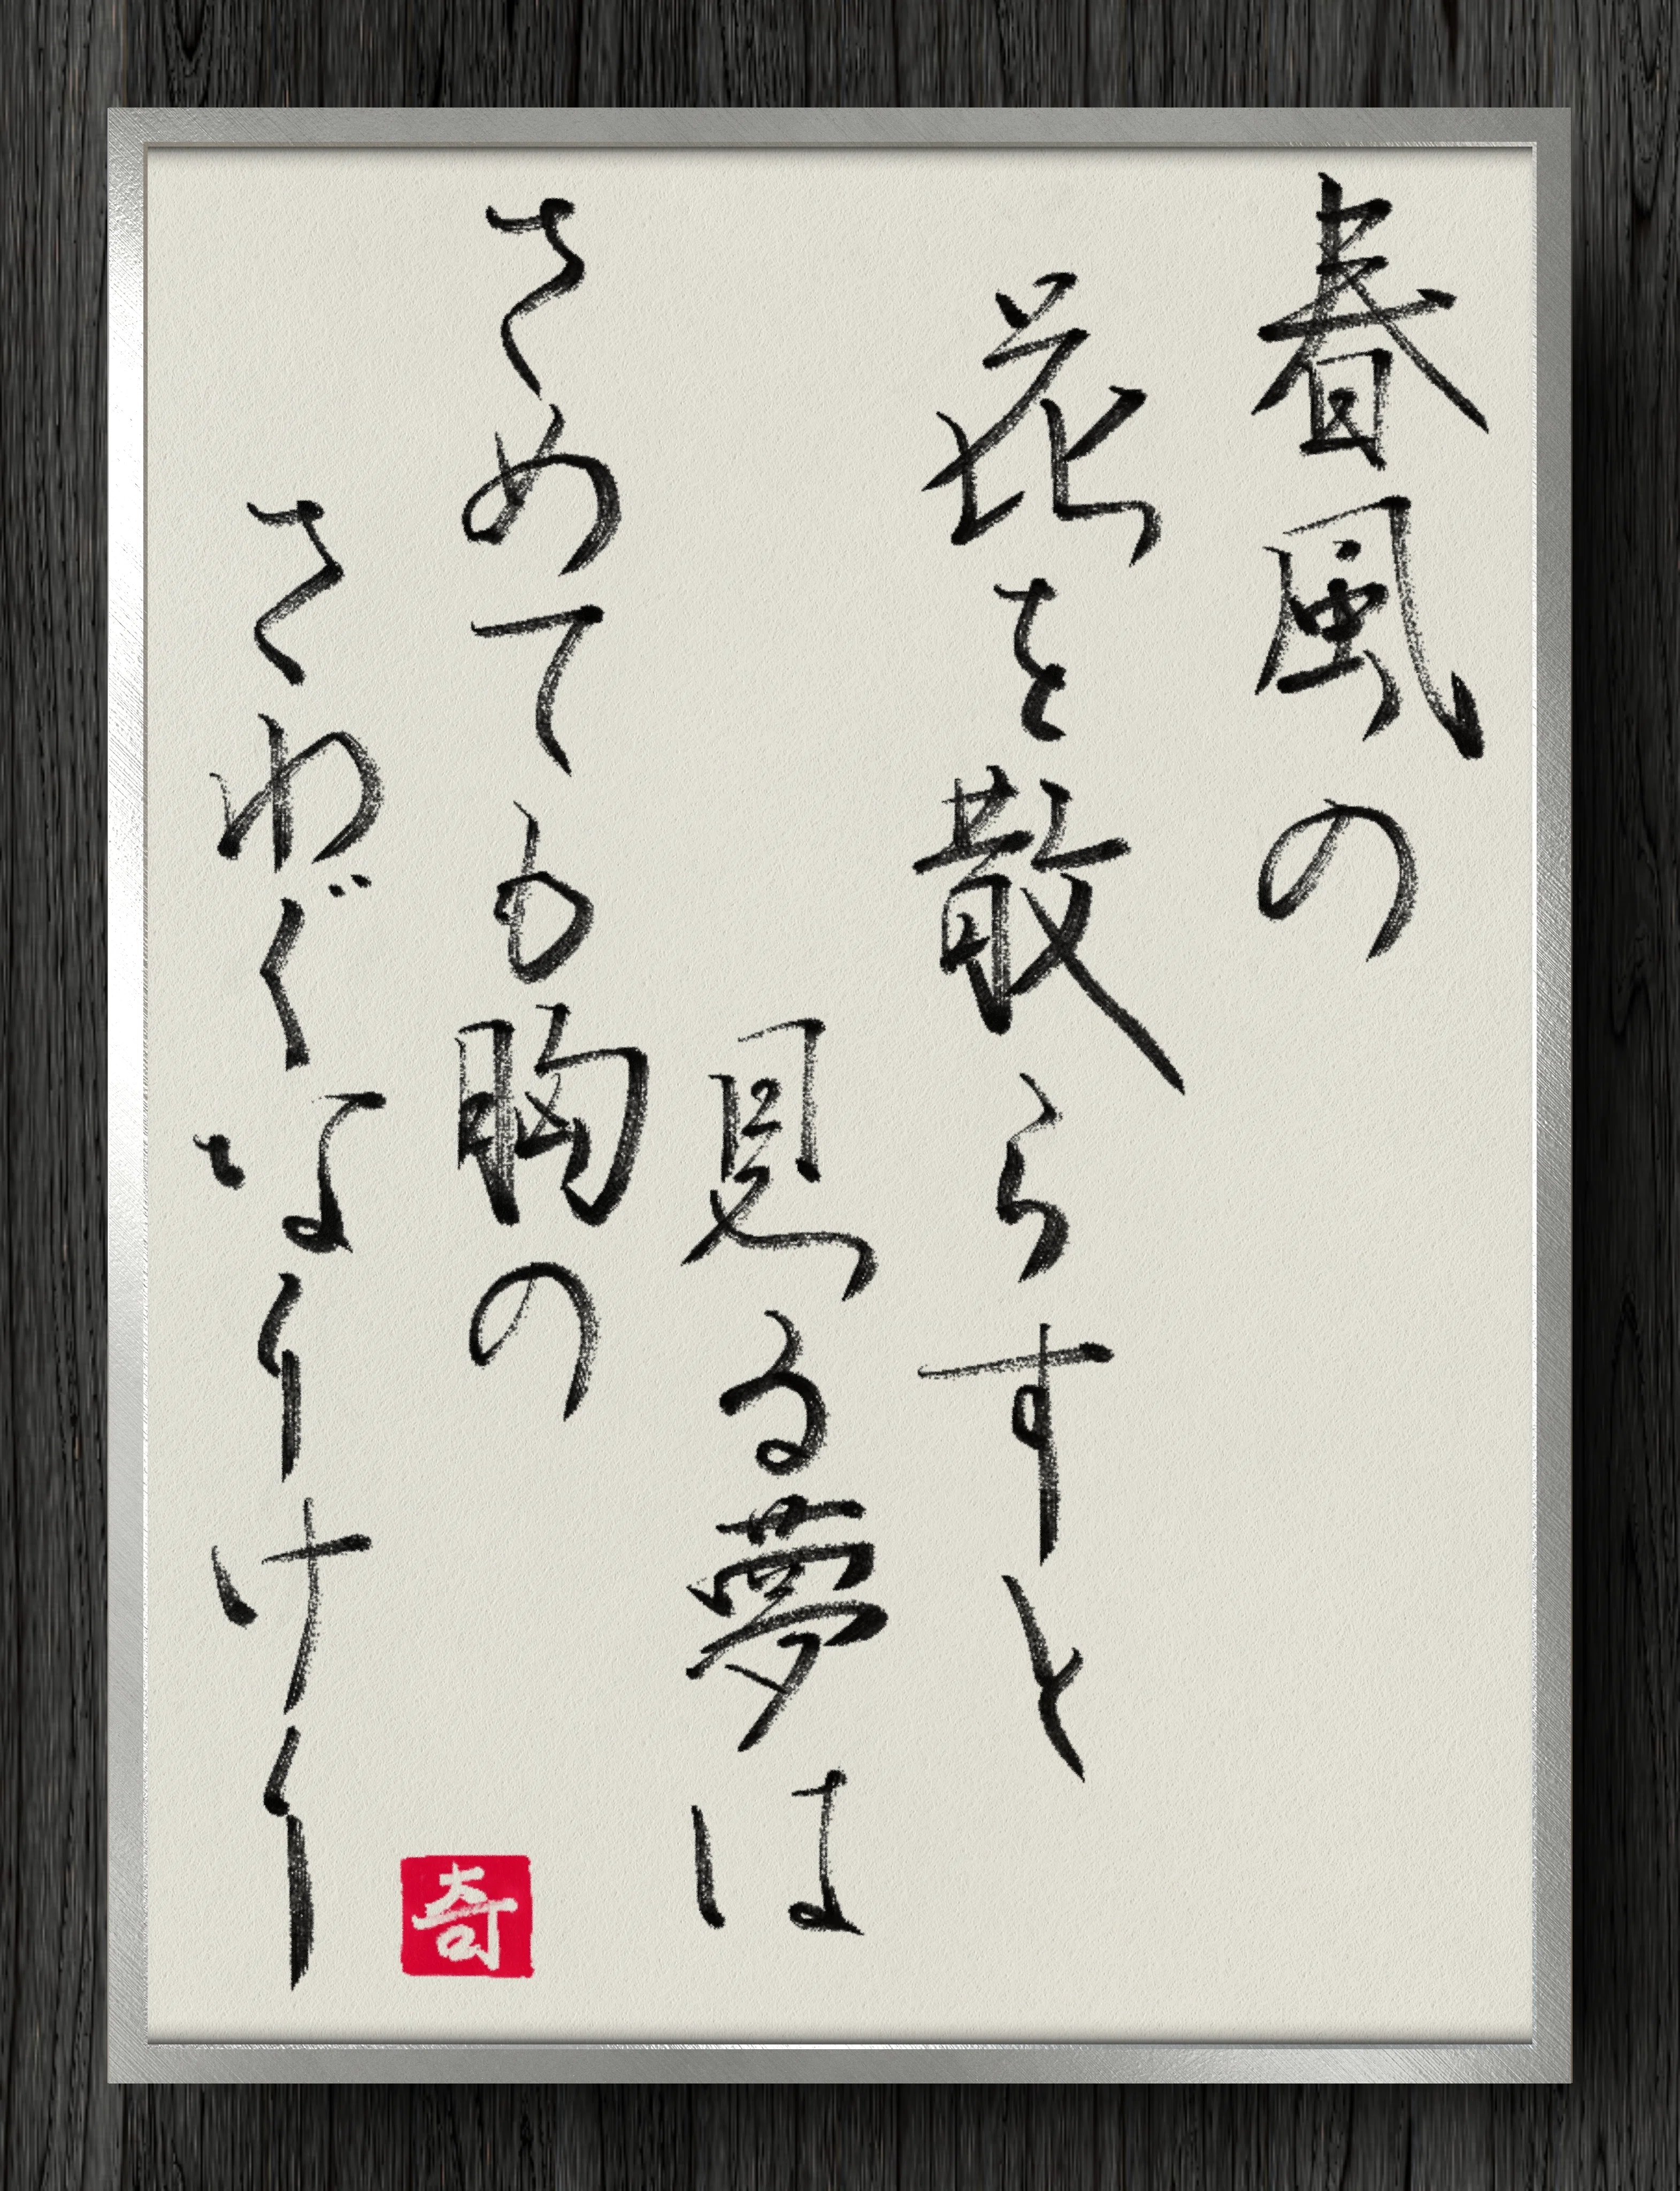 春風の
花を散らすと
見る夢は
さめても胸の
さわぐなりけり
奇